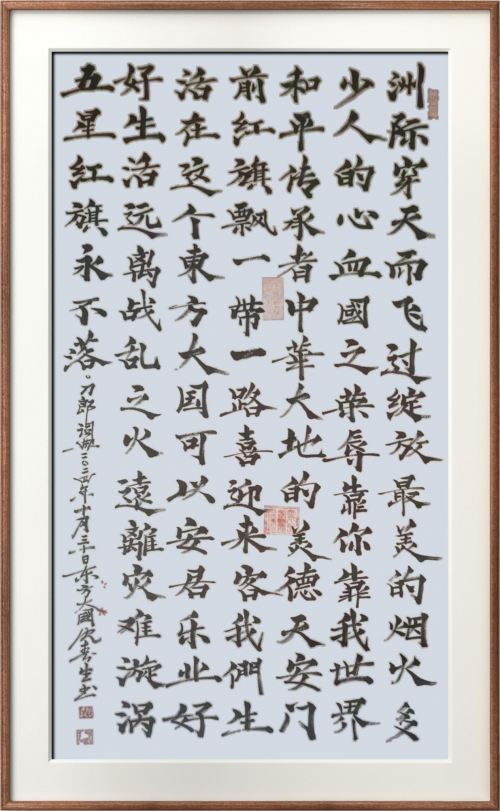 洲际穿天而飞过绽放最美的烟火多
少人的心血國之荣辱靠你靠我世界
和平传承者中華大地的美德天安门
前红旗飘一带一路喜迎来客我們生
活在这个東方大国可以安居乐业好
好生活远离战乱之火遠離灾难漩涡
五星红旗永不落。
刀郎词曲二〇二四年十月三十日东方大國